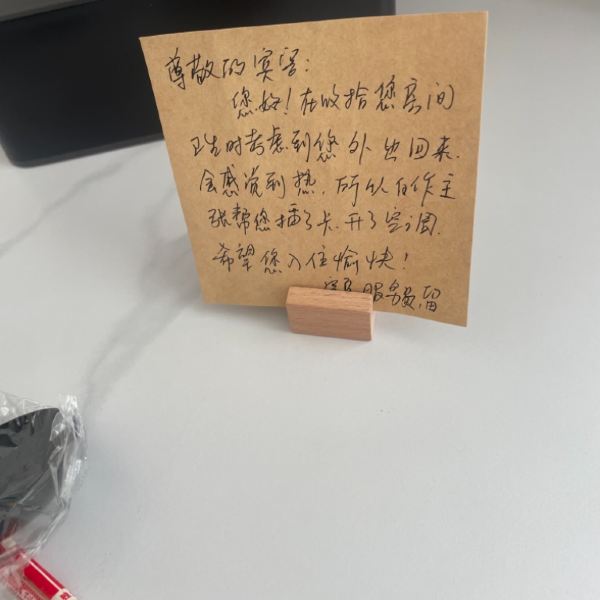 尊敬的宾客:
您好!在收拾您房间
卫生时考虑到您外出回来.
会感觉到热,所以自作主
张帮您插了卡.开了空调.
希望您入住愉快!
客房服务员.留